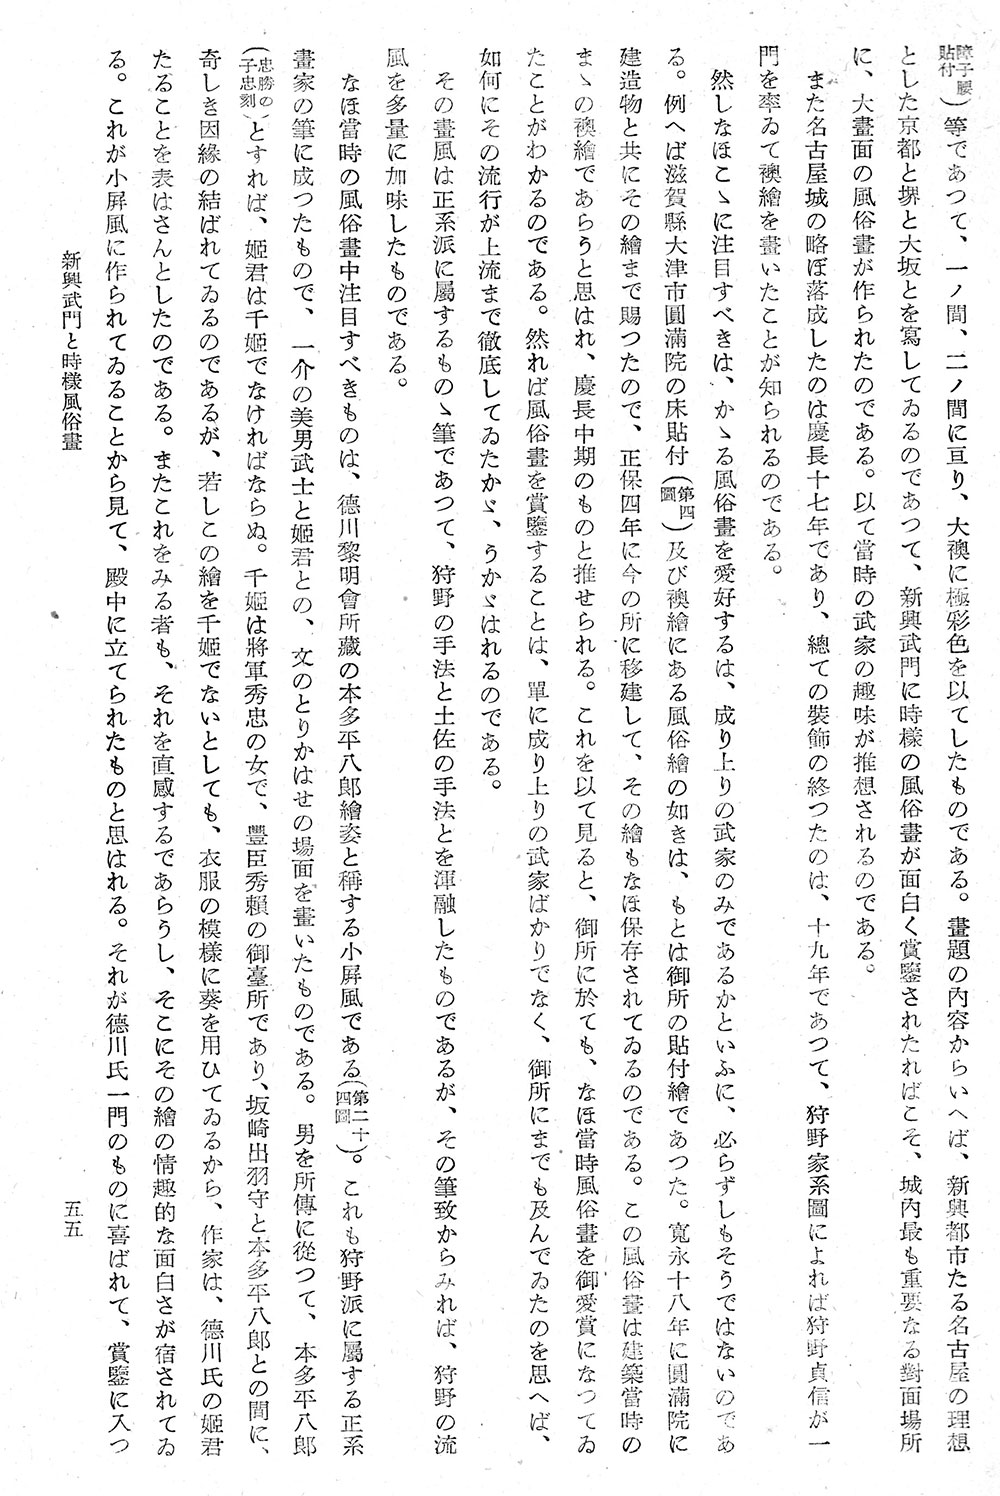 障子腰貼付)等であつて、一ノ間、二ノ間に亘り、大襖に極彩色を以てしたものである。畫題の內容からいへば、新興都市たる名古屋の理想
とした京都と堺と大坂とを寫してゐるのであつて、新興武門に時樣の風俗畫が面白く賞鑒されたればこそ、城內最も重要なる對面場所
に、大畫面の風俗畫が作られたのである。以て當時の武家の趣味が推想されるのである。
また名古屋城の略ぼ落成したのは慶長十七年であり、總ての裝飾の終つたのは、十九年であつて、狩野家系圖によれば狩野貞信が一
門を率ゐて襖繪を畫いたことが知られるのである。
然しなほこゝに注目すべきは、かゝる風俗畫を愛好するは、成り上りの武家のみであるかといふに、必らずしもそうではないのであ
る。例へば滋賀縣大津市圓滿院の床貼付(第四圖)及び襖繪にある風俗繪の如きは、もとは御所の貼付繪であつた。寬永十八年に圓滿院に
建造物と共にその繪まで賜つたので、正保四年に今の所に移建して、その繪もなほ保存されてゐるのである。この風俗畫は建築當時の
まゝの襖繪であらうと思はれ、慶長中期のものと推せられる。これを以て見ると、御所に於ても、なほ當時風俗畫を御愛賞になつてゐ
たことがわかるのである。然れば風俗畫を賞鑒することは、單に成り上りの武家ばかりでなく、御所にまでも及んでゐたのを思へば、
如何にその流行が上流まで徹底してゐたかゞ、うかゞはれるのである。
その畫風は正系派に屬するものゝ筆であつて、狩野の手法と土佐の手法とを渾融したものであるが、その筆致からみれば、狩野の流
風を多量に加味したものである。
なほ當時の風俗畫中注目すべきものは、德川黎明會所藏の本多平八郞繪姿と稱する小屛風である(第二十四圖)。これも狩野派に屬する正系
畫家の筆に成つたもので、一介の美男武士と姬君との、文のとりかはせの場面を畫いたものである。男を所傳に從つて、本多平八郞
(忠勝の子忠刻)とすれば、姬君は千姬でなければならぬ。千姬は將軍秀忠の女で、豐臣秀賴の御臺所であり、坂崎出羽守と本多平八郞との間に、
奇しき因緣の結ばれてゐるのであるが、若しこの繪を千姬でないとしても、衣服の模樣に葵を用ひてゐるから、作家は、德川氏の姬君
たることを表はさんとしたのである。またこれをみる者も、それを直感するであらうし、そこにその繪の情趣的な面白さが宿されてゐ
る。これが小屛風に作られてゐることから見て、殿中に立てられたものと思はれる。それが德川氏一門のものに喜ばれて、賞鑒に入つ
新興武門と時樣風俗畫
五五